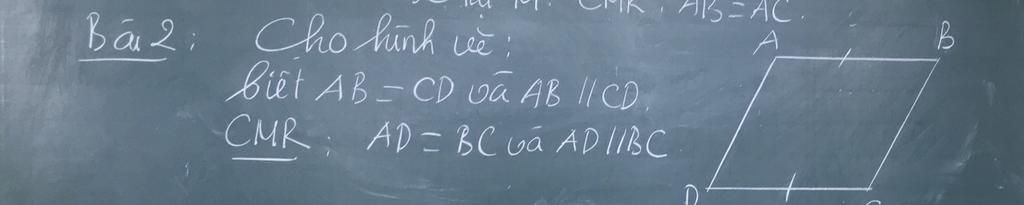 CMR: AB = AC.
Bài 2: Cho hình vẽ:
biết AB = CD và AB // CD.
CMR: AD = BC và AD // BC
A
B
D